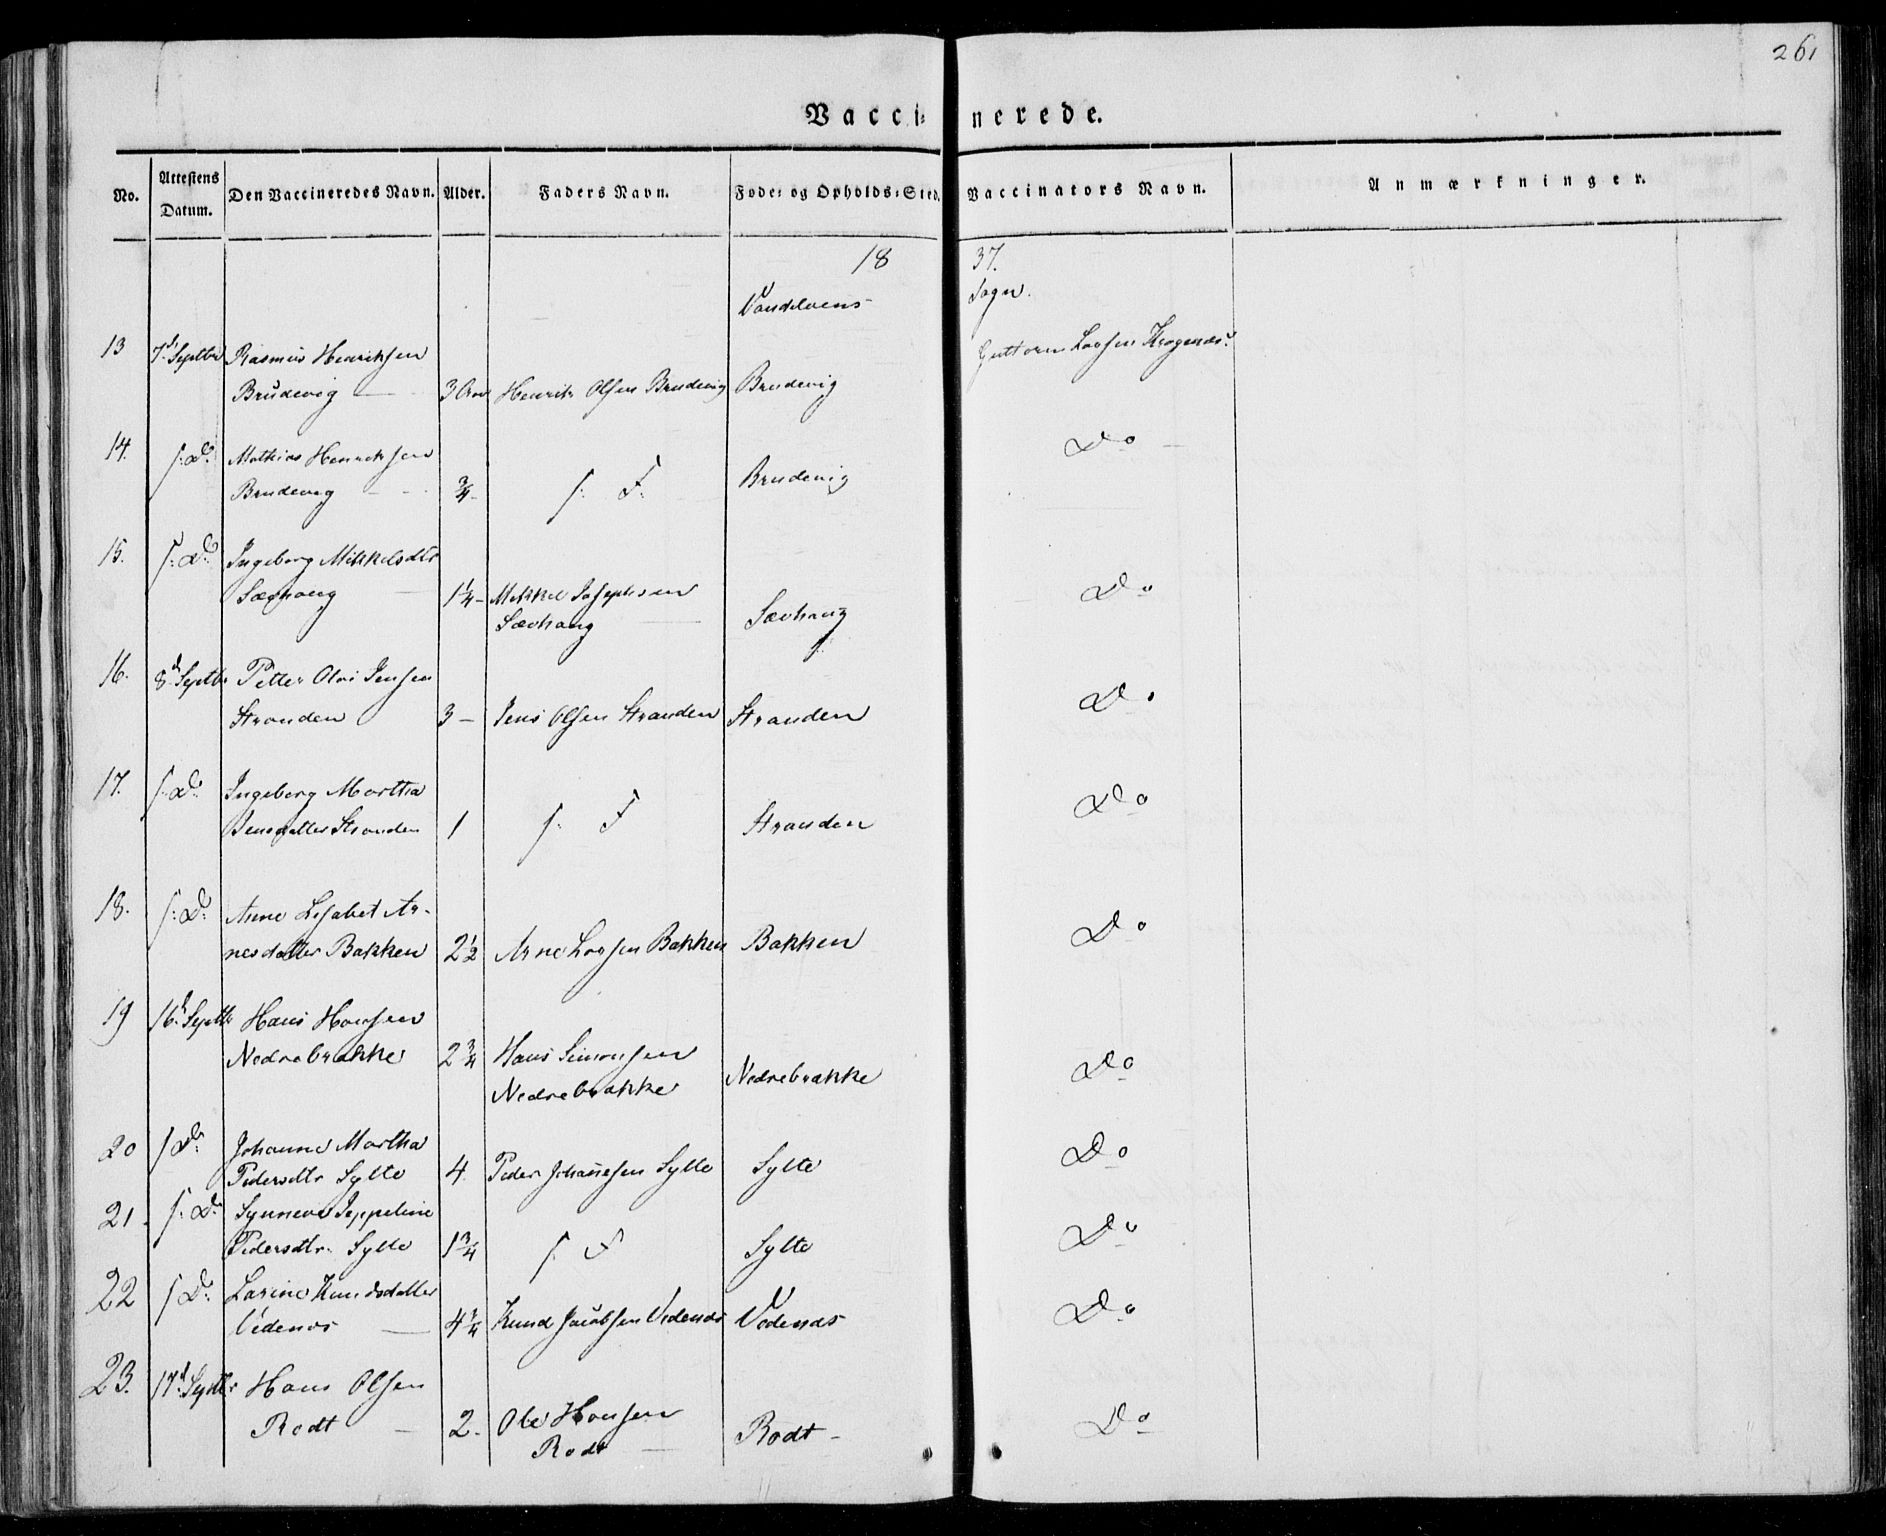 261
Vacci- nerede.
No. Attestens Datum. Den Vaccineredes Navn. Alder. Faders Navn. Føde- og Opholds-Sted. Vaccinators Navn. Anmærkninger.
18 37.
Vandelvens Sogn.
13 7d Septbr Rasmus Henriksen Guttorm Larsen Kragenæs.
Brudevig — 3 Aar Henrik Olsen Brudevig Brudevig
14. s: D: Mathias Henriksen Do —
Brudevig — 3/4 — s: F: Brudevig
15. s: D: Ingeborg Mikkelsdtr
Sævhaug — 1 1/4 — Mikkel Josephsen Sævhaug Do
Sævhaug —
16. 8d Septbr Petter Olai Jensen Do
Stranden 3 — Jens Olsen Stranden Stranden
17. s: D: Ingeborg Martha Do
Jensdatter Stranden 1 s: F Stranden
18. s: D: Anne Lisabet Ar-
nesdatter Bakken 2 1/2 Arne Larsen Bakken Bakken Do
19 16d Septbr Hans Hansen
Nedrebrække 2 3/4 Hans Simonsen Nedrebrække Do
Nedrebrække
20 s D: Johanne Martha Do
Pedersdtr Sylte 4. Peder Johannesen Sylte Sylte
21. s: D: Synneve Jeppeline
Pedersdtr. Sylte 1 3/4 s: F Sylte Do
22 s D: Larine Knudsdatter
Vedenæs — 4 1/4 Knud Jacobsen Vedenæs Vedenæs Do
23. 17d Septbr Hans Olsen
Rødt — 2. Ole Hansen Rødt — Do
Rødt —